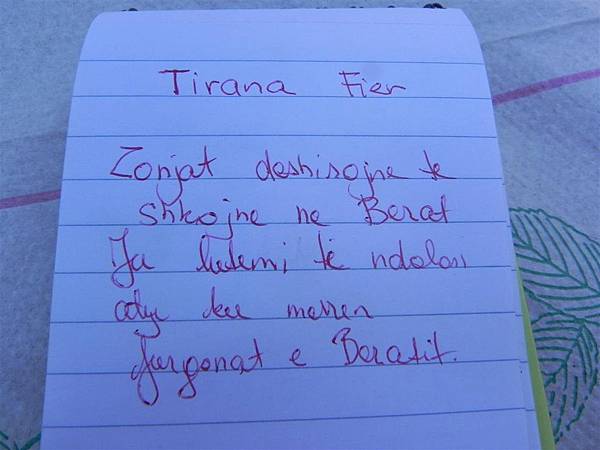 Tirana Fier
Zonjat deshirojne te
shkojne ne Berat
Ju lutemi të ndalosi
atje ku merren
furgonat e Beratit.